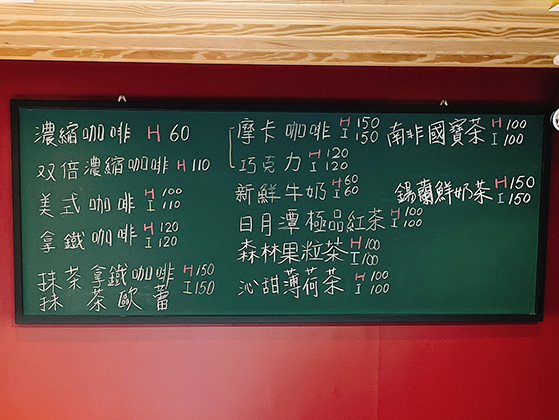 濃縮咖啡 H 60
双倍濃縮咖啡 H 110
美式咖啡 H 100 I 110
拿鐵咖啡 H 120 I 120
抹茶拿鐵咖啡 H 150 I 150
抹茶歐蕾
摩卡咖啡 H 150 I 150
巧克力 H 120 I 120
新鮮牛奶 H 60 I 60
日月潭極品紅茶 H 100 I 100
森林果粒茶 H 100 I 100
沁甜薄荷茶 H 100 I 100
南非國寶茶 H 100 I 100
錫蘭鮮奶茶 H 150 I 150